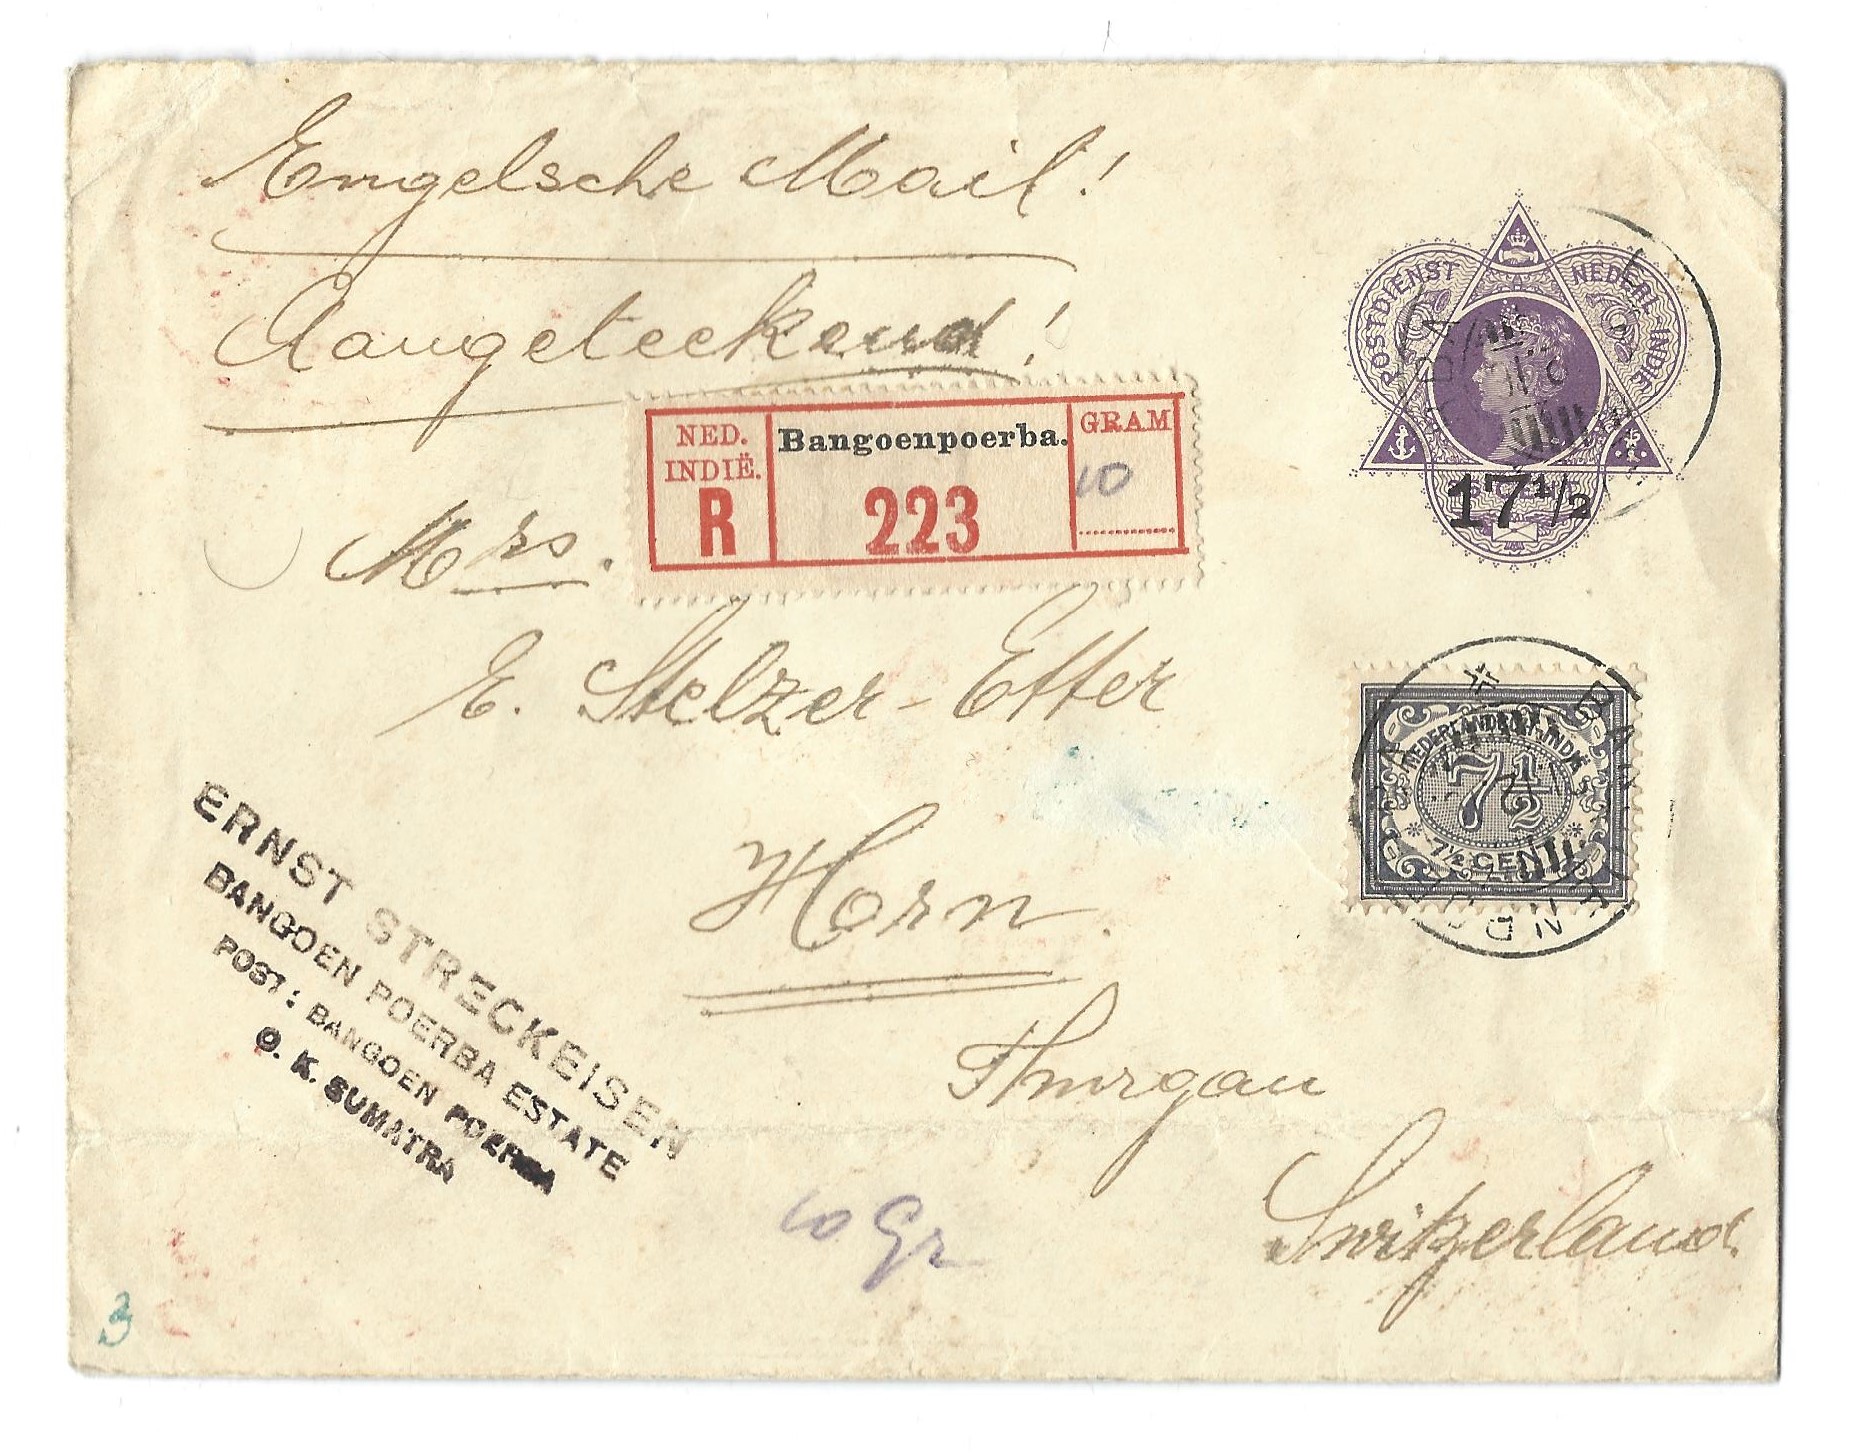 Engelsche Mail!
Aangeteekend!
NED. INDIË.
R
Bangoenpoerba.
223
GRAM
10
POSTDIENST
NEDERL INDIE
17 1/2
Mrs.
E. Stelzer-Etter
NEDERLANDSCH-INDIË
7 1/2
7½ CENT
Horn.
Thurgau
Switzerland.
ERNST STRECKEISEN
BANGOEN POERBA ESTATE
POST: BANGOEN POERBA
O. K. SUMATRA
10 Gr
3